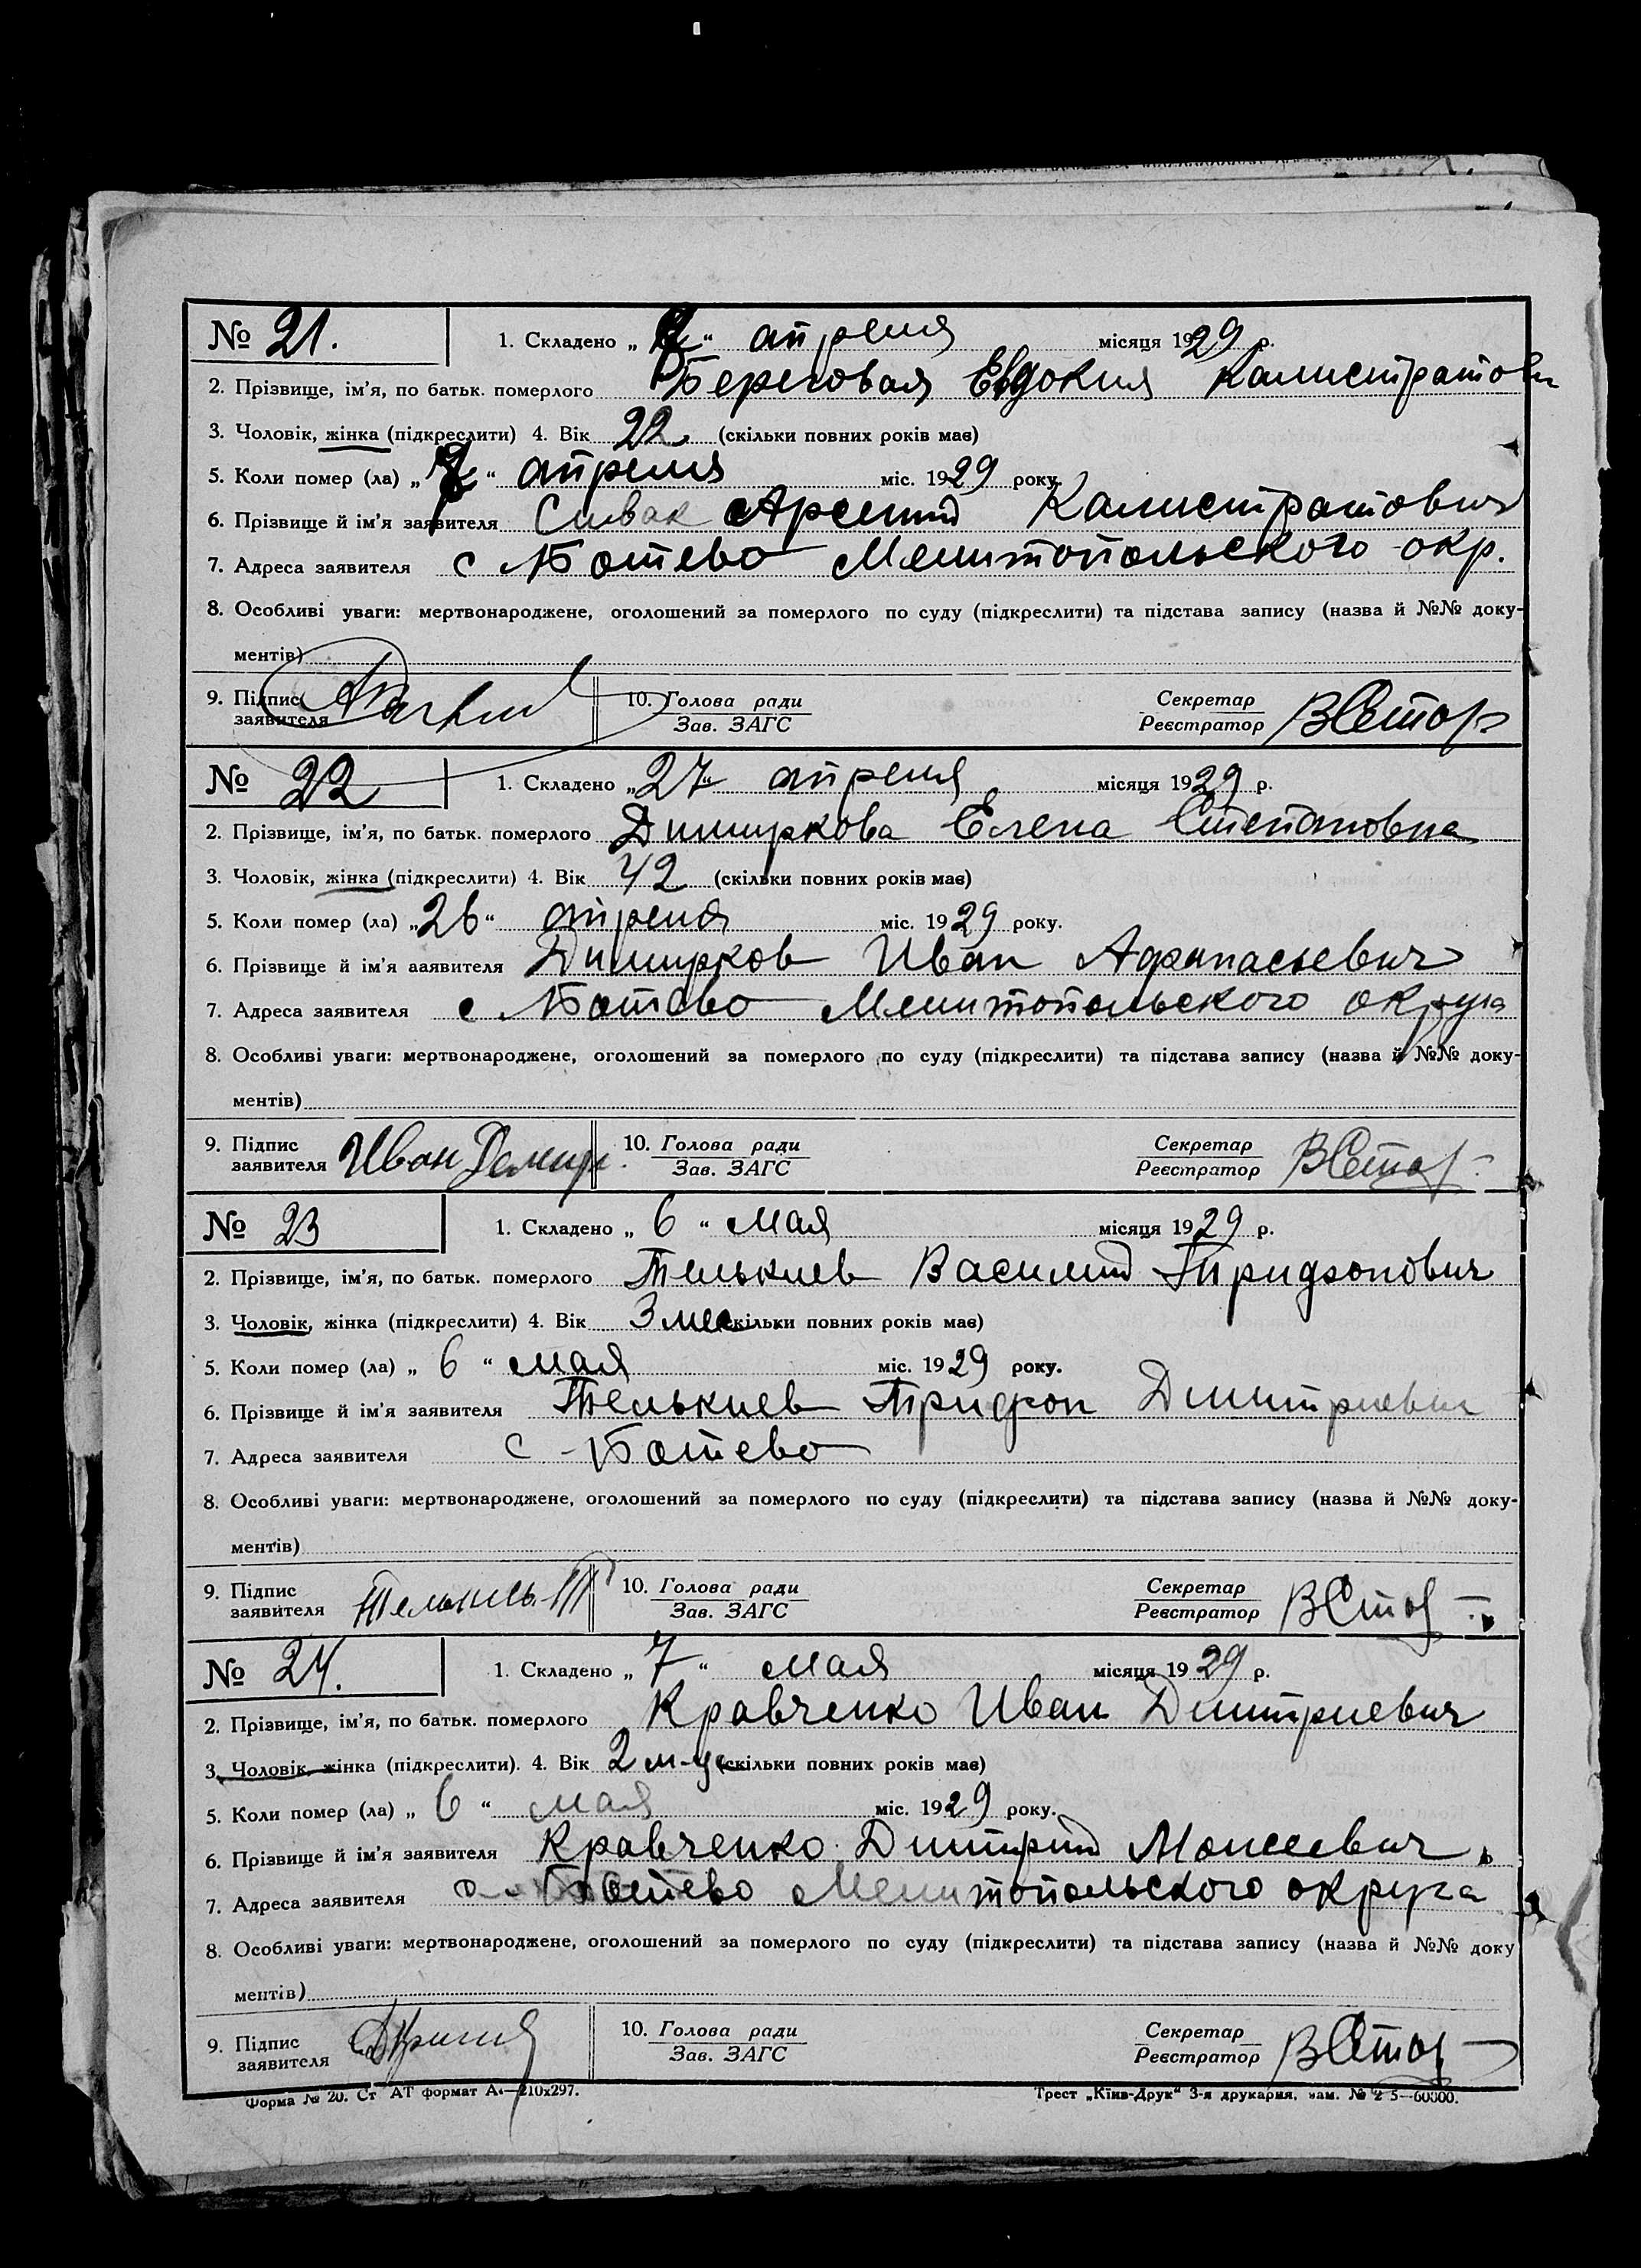 № 21. 1. Складено „ “ апреля місяця 1929 р.
2. Прізвище, ім’я, по батьк. померлого Береговая Евдокия Калистратовн
3. Чоловік, жінка (підкреслити) 4. Вік 22 (скільки повних років має)
5. Коли помер (ла) „ “ апреля міс. 1929 року.
6. Прізвище й ім’я заявителя Сивак Арсений Калистратович
7. Адреса заявителя с Ботево Мелитопольского окр.
8. Особливі уваги: мертвонароджене, оголошений за померлого по суду (підкреслити) та підстава запису (назва й №№ доку-
ментів)
9. Підпис 10. Голова ради Секретар
заявителя Зав. ЗАГС Реєстратор
№ 22 1. Складено „27“ апреля місяця 1929 р.
2. Прізвище, ім’я, по батьк. померлого Димиркова Елена Степановна
3. Чоловік, жінка (підкреслити) 4. Вік 42 (скільки повних років має)
5. Коли помер (ла) „26“ апреля міс. 1929 року.
6. Прізвище й ім’я ааявителя Димирков Иван Афанасьевич
7. Адреса заявителя с Ботево Мелитопольского округа
8. Особливі уваги: мертвонароджене, оголошений за померлого по суду (підкреслити) та підстава запису (назва й №№ доку-
ментів)
9. Підпис 10. Голова ради Секретар
заявителя Иван Зав. ЗАГС Реєстратор
№ 23 1. Складено „ 6 “ мая місяця 1929 р.
2. Прізвище, ім’я, по батьк. померлого Телькиев Василий Трифонович
3. Чоловік, жінка (підкреслити) 4. Вік 3 мес скільки повних років має)
5. Коли помер (ла) „ 6 “ мая міс. 1929 року.
6. Прізвище й ім’я заявителя Телькиев Трифон Дмитриевич
7. Адреса заявителя с Ботево
8. Особливі уваги: мертвонароджене, оголошений за померлого по суду (підкреслити) та підстава запису (назва й №№ доку-
ментів)
9. Підпис 10. Голова ради Секретар
заявителя Зав. ЗАГС Реєстратор
№ 24. 1. Складено „ 7 “ мая місяця 1929 р.
2. Прізвище, ім’я, по батьк. померлого Кравченко Иван Дмитриевич
3. Чоловік, жінка (підкреслити). 4. Вік 2 м-ца скільки повних років має)
5. Коли помер (ла) „ 6 “ мая міс. 1929 року.
6. Прізвище й ім’я заявителя Кравченко Дмитрий Моисеевич
7. Адреса заявителя Ботево Мелитопольского округа
8. Особливі уваги: мертвонароджене, оголошений за померлого по суду (підкреслити) та підстава запису (назва й №№ доку
ментів)
9. Підпис 10. Голова ради Секретар
заявителя Зав. ЗАГС Реєстратор
Форма № 20. Ст АТ формат А₄—210х297. Трест „Київ-Друк“ 3-я друкарня, зам. №